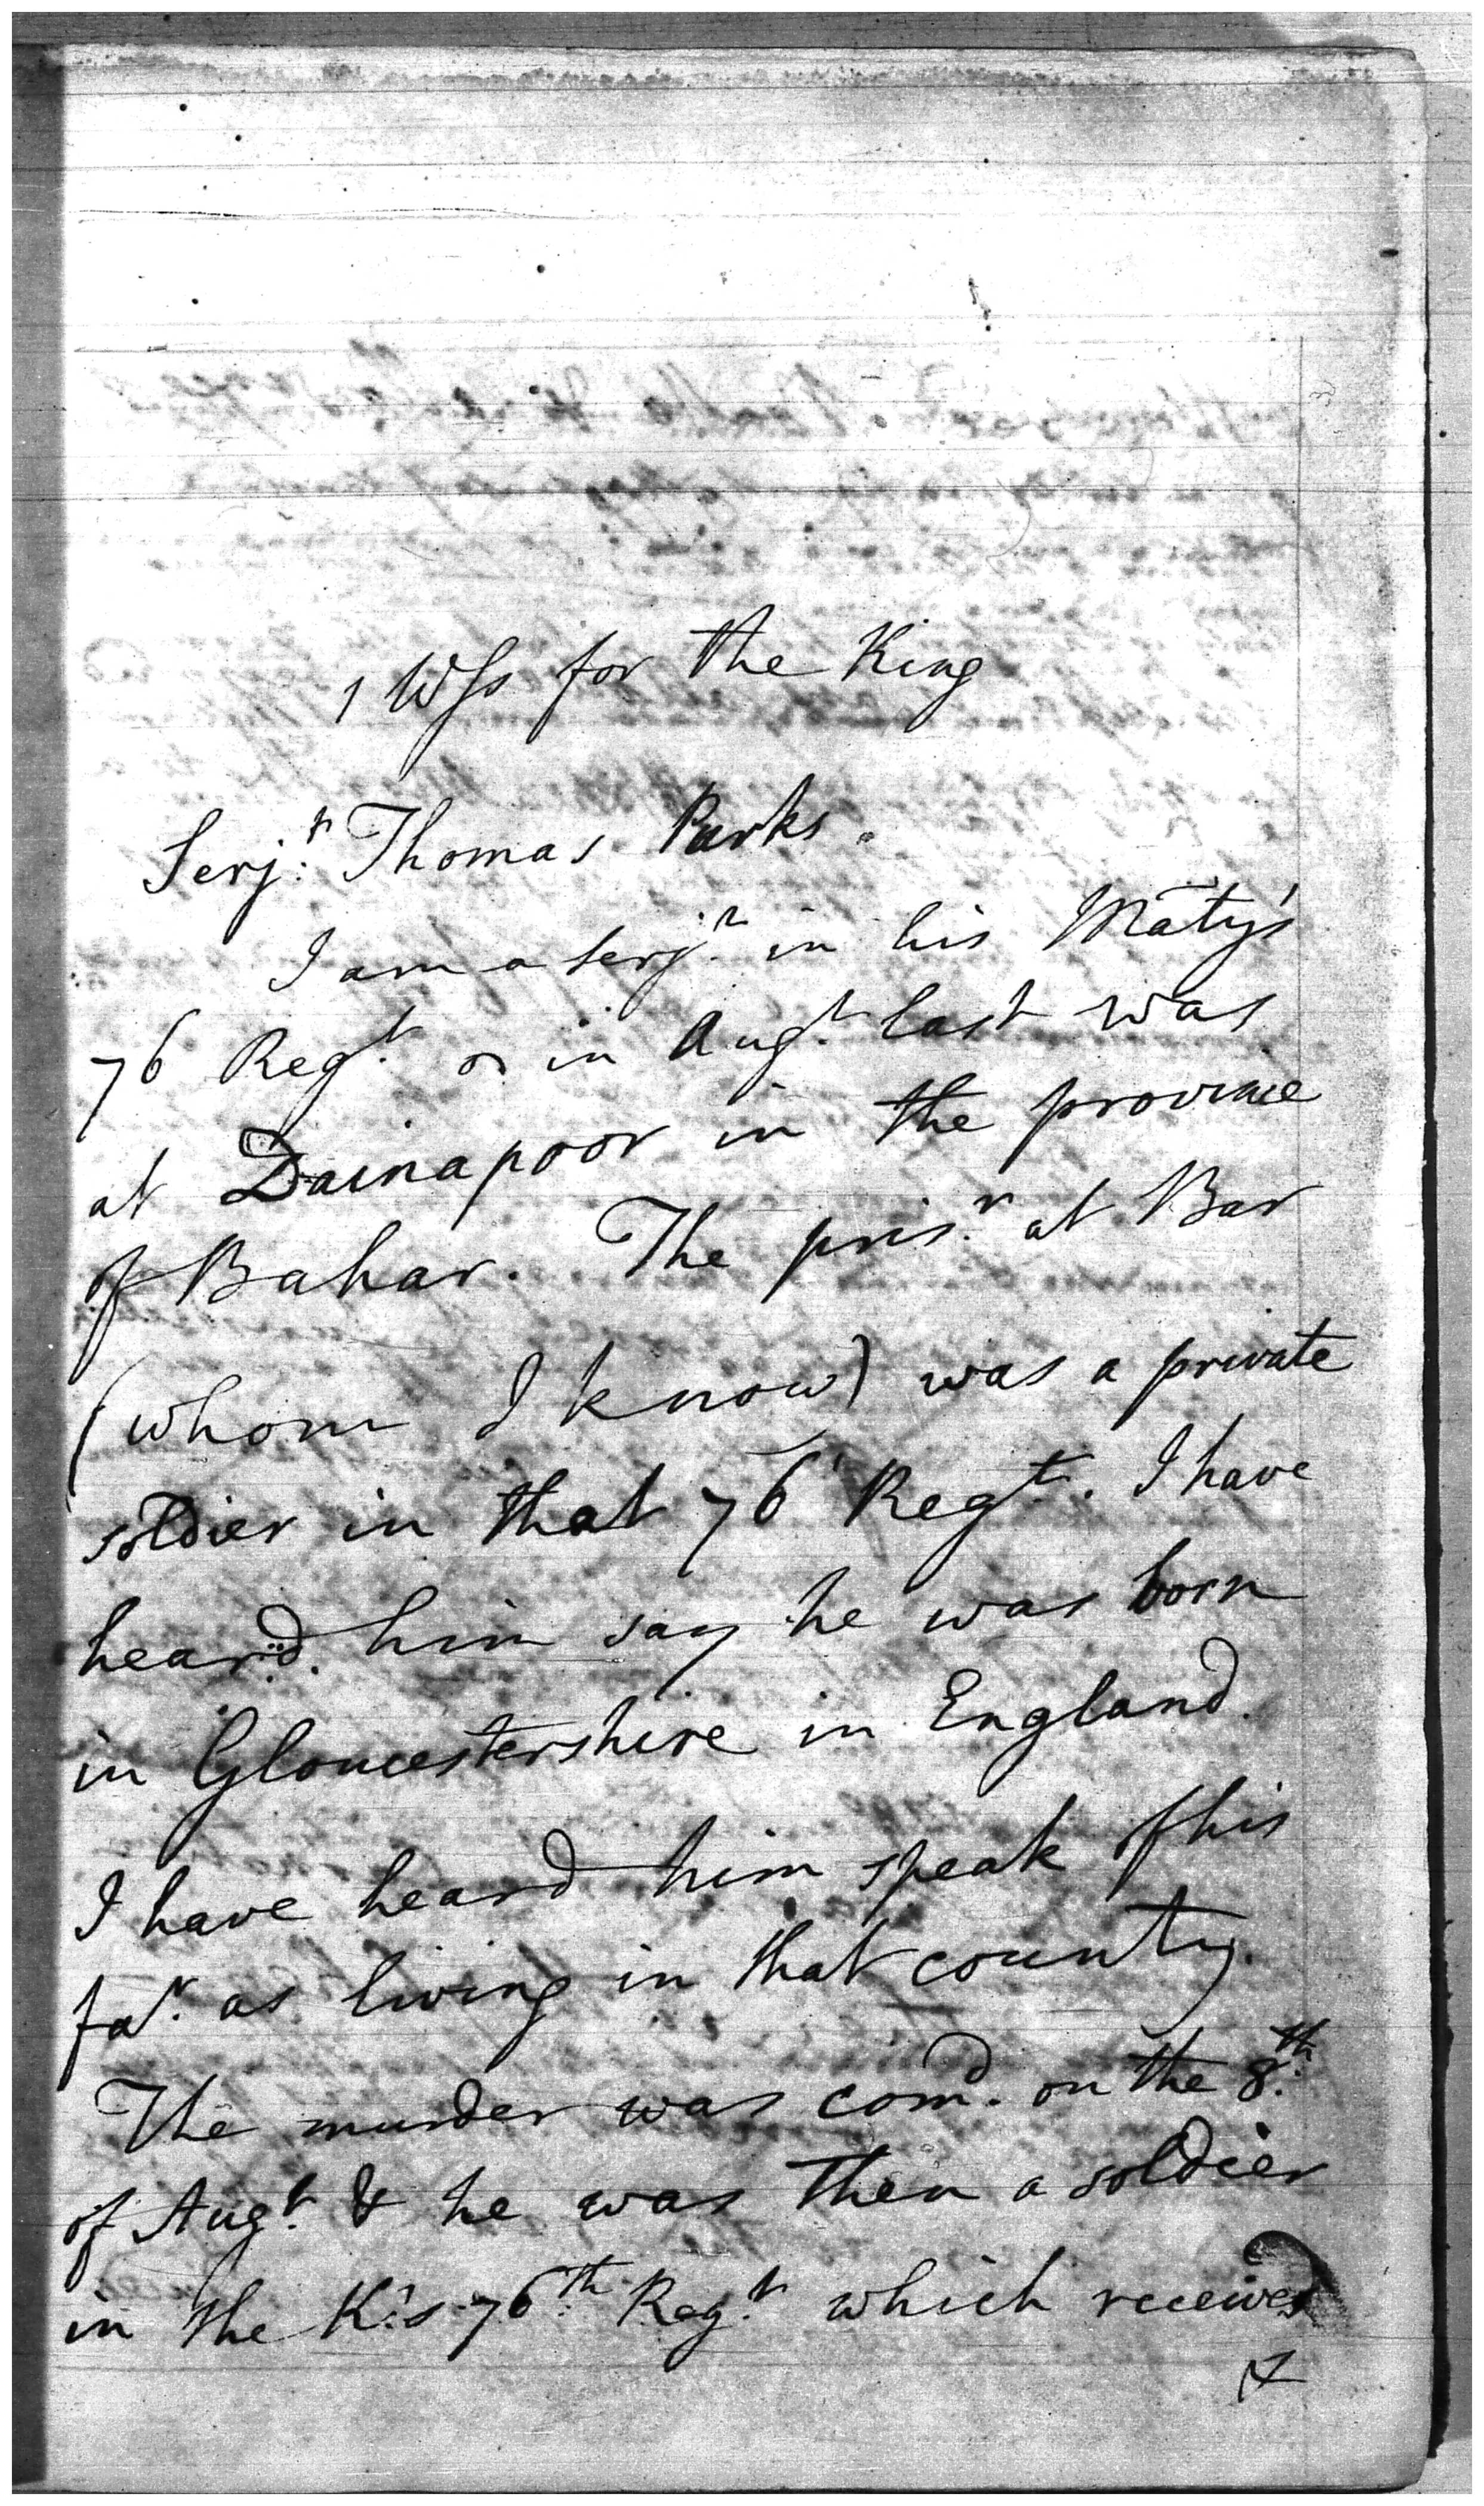 1 Wss for the King
Serj:t Thomas Parks.
I am a serj.t in his Maty's
76 Reg.t & in Aug.t last was
at Dainapoor in the province
of Bahar. The pris.r at Bar
(whom I know) was a private
soldier in that 76 Reg.t. I have
heard him say he was born
in Gloucestershire in England.
I have heard him speak of his
far. as living in that county.
The murder was comd. on the 8.th
of Aug.t & he was then a soldier
in the K's 76.th Reg.t which received